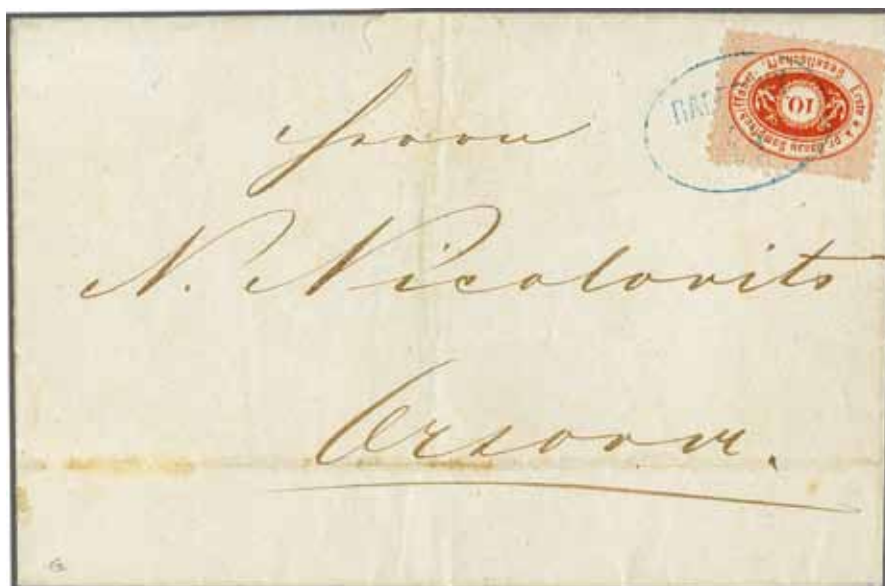 Erste k. k. pr. Donau Dampfschiffahrt. Gesellschaft
10
Herrn
N. Nicolovits
Orsova.